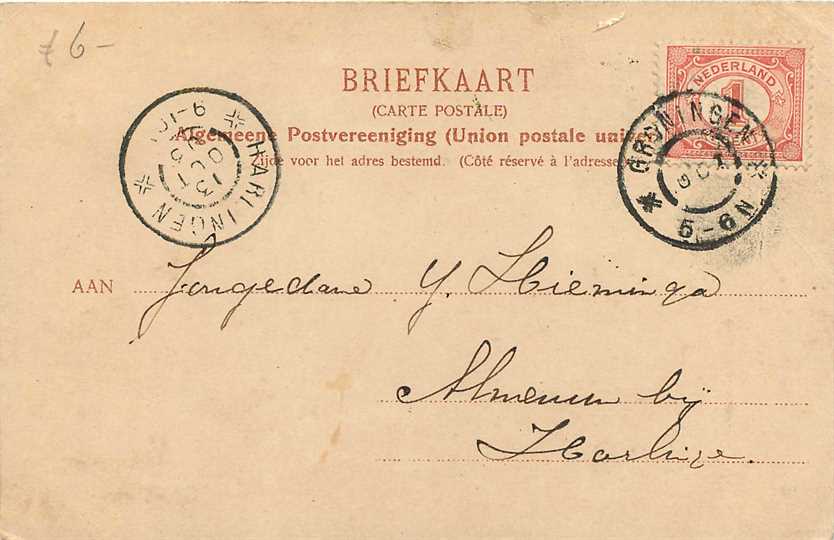 6-
BRIEFKAART
(CARTE POSTALE)
Algemeene Postvereeniging (Union postale unive
Zijde voor het adres bestemd. (Côté réservé à l'adresse
NEDERLAND
1
GRONINGEN
5-6N
HARLINGEN
AAN Jongedame Y. Hieminga
Almenum bij
Harlinge.